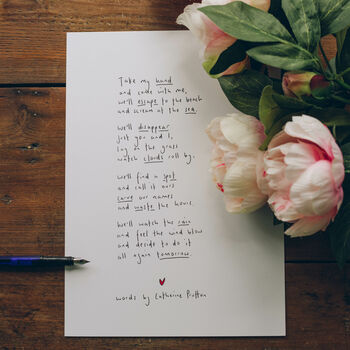 Take my hand
and come with me,
we'll escape to the beach
and scream at the sea.
We'll disappear
just you and I,
lay on the grass
watch clouds roll by.
We'll find a spot
and call it ours
carve our names
and waste the hours.
We'll watch the rain
and feel the wind blow
and decide to do it
all again tomorrow
words by Catherine Prutton